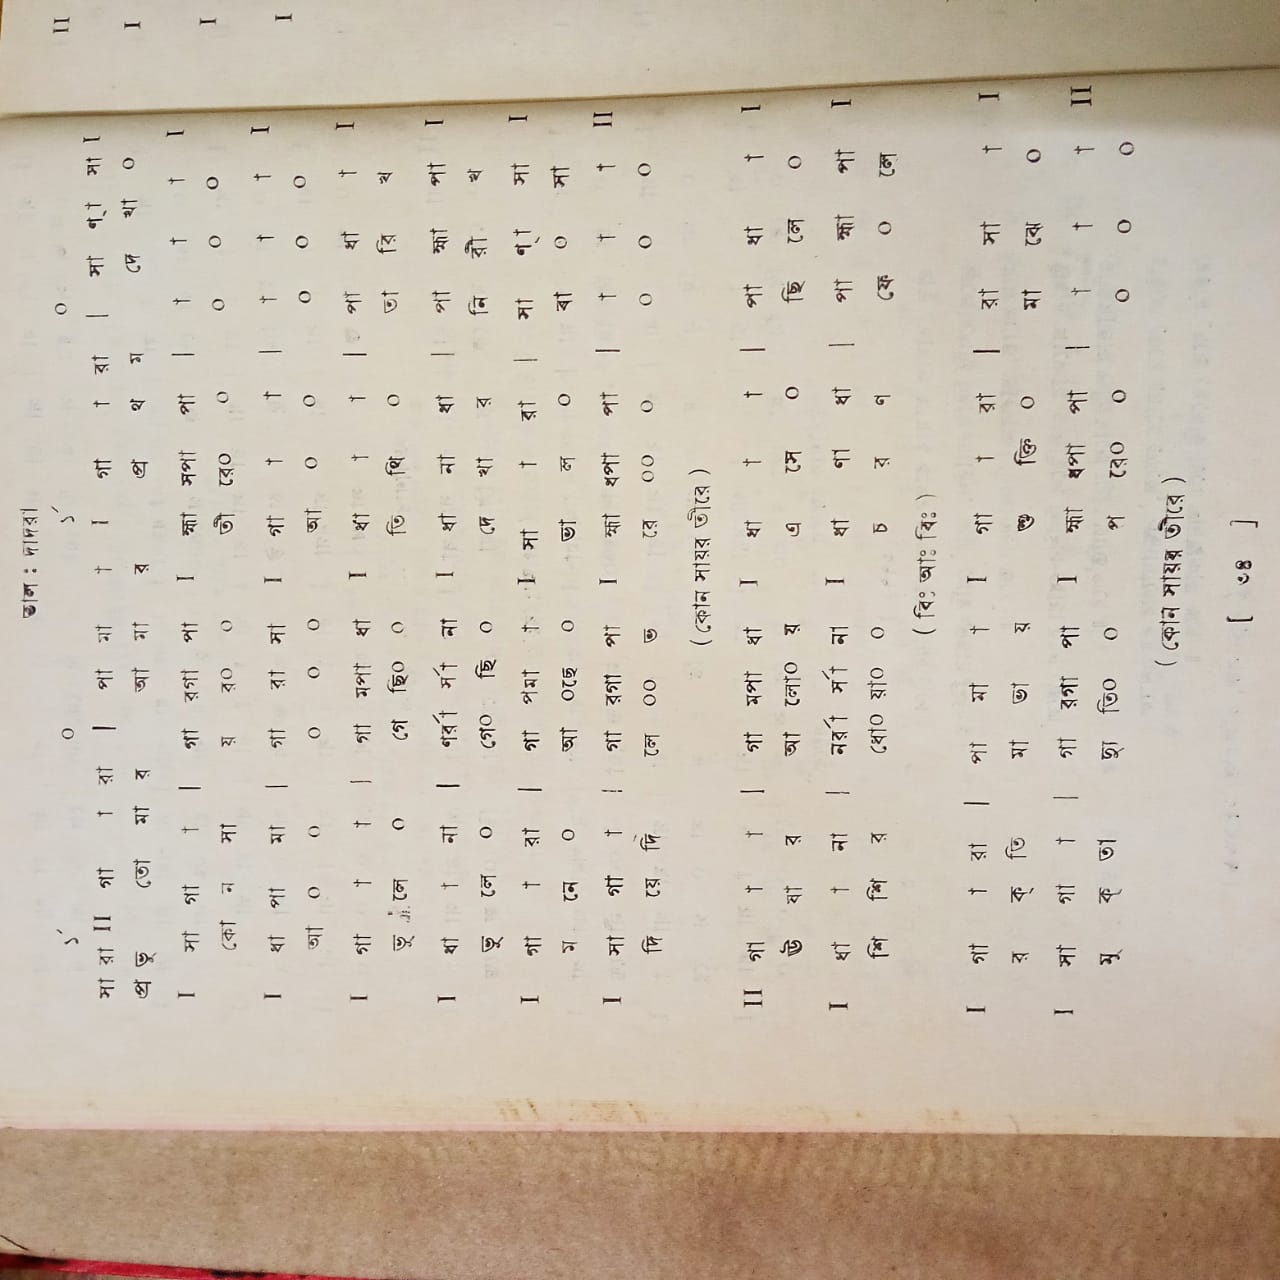 তাল : দাদরা
১´ ০ ১´ ০
সা রা II গা া রা | পা মা া I গা া রা | সা ণ্া সা I
প্র ভু তো মা র আ মা র প্র থ ম দে খা ০
I সা গা া | গা রগা পা I হ্মা মপা পা | া া া I
কো ন সা য় র০ ০ তী রে০ ০ ০ ০ ০
I ধা পা মা | গা রা সা I গা া া | া া া I
আ ০ ০ ০ ০ ০ আ ০ ০ ০ ০ ০
I গা া া | গা মপা ধা I ধা া া | পা ধা া I
ভু লে ০ গে ছি০ ০ তি থি ০ তা রি খ
I ধা া না | ণর্রা র্সা না I ধা না ধা | পা হ্মা পা I
ভু লে ০ গে০ ছি ০ দে খা র নি রী খ
I গা া রা | গা পমা া I সা া রা | সা ণ্া সা I
ম নে ০ আ ০ছে ০ ভা ল ০ বা ০ সা
I সা গা া | গা রগা পা I হ্মা ধপা পা | া া া II
দি য়ে দি লে ০০ ভ রে ০০ ০ ০ ০ ০
( কোন সায়র তীরে )
II গা া া | গা মপা ধা I ধা া া | পা ধা া I
উ ষা র আ লো০ য় এ সে ০ ছি লে ০
I ধা া না | নর্রা র্সা না I ধা ণা ধা | পা হ্মা পা I
শি শি র ধো০ য়া০ ০ চ র ণ ফে ০ লে
( বিঃ আঃ বিঃ )
I গা া রা | পা মা া I গা া রা | রা সা া I
র ক্ তি মা ভা য় শু ক্তি ০ মা ঝে ০
I সা গা া | গা রগা পা I হ্মা ধপা পা | া া া II
মু ক্ তা দ্যু তি০ ০ প রে০ ০ ০ ০ ০
( কোন সায়র তীরে )
[ ৩৪ ]